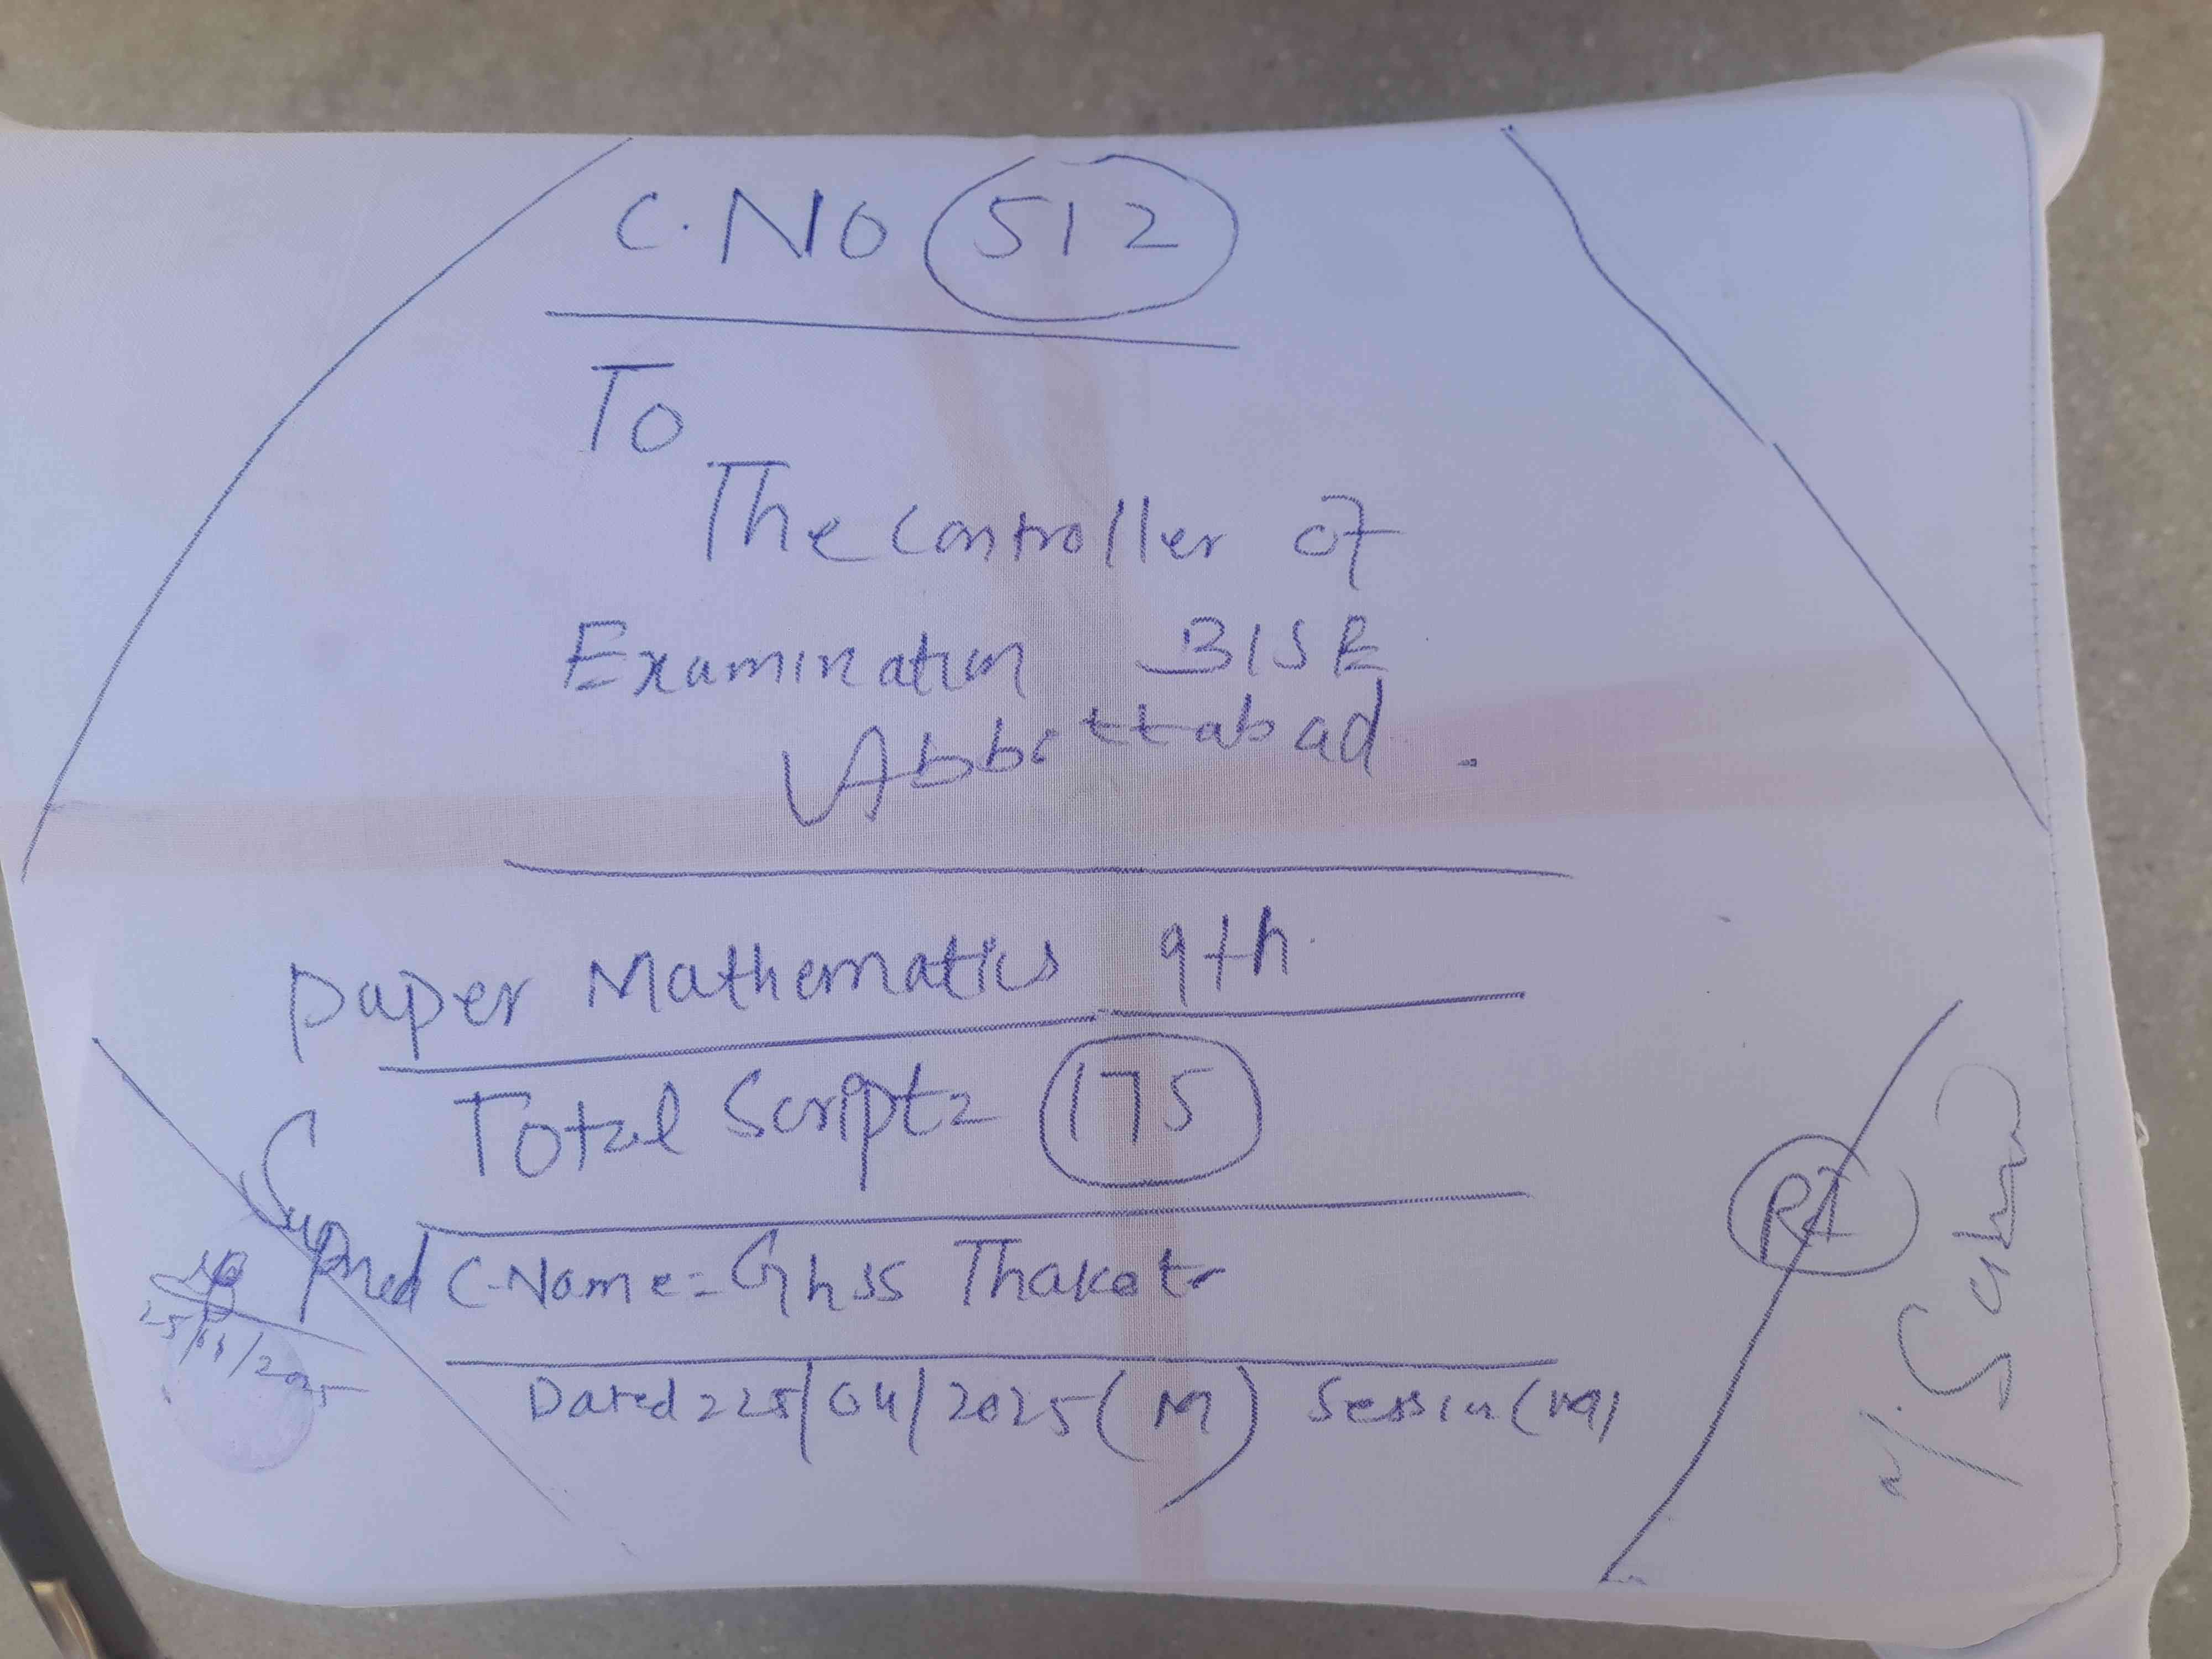 C.No 512
To
The Controller of
Examination BISE
Abbottabad.
Paper Mathematics 9th.
Total Script = 175
C-Name = Ghss Thakot
Dated 25/04/2025 (M) Session (M)
25/04/2025
RI